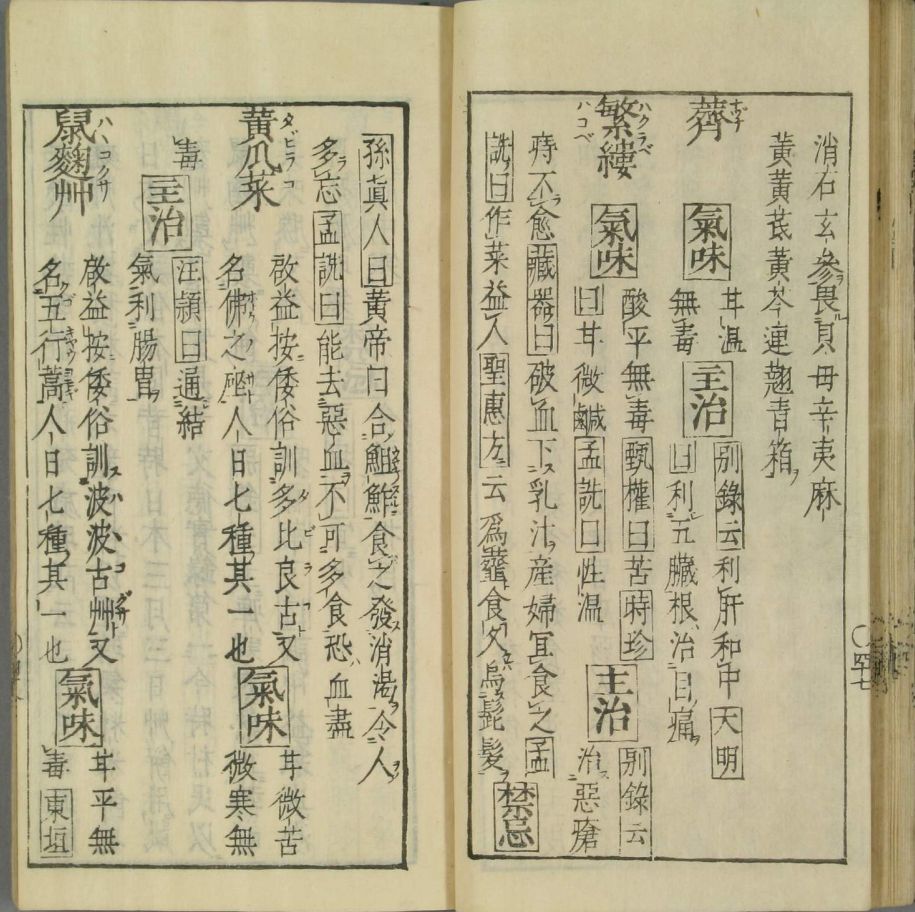 消石玄參畏貝母辛夷麻
黃黃芪黃芩連翹青箱
薺
ナヅナ
氣味
甘温
無毒
主治
別錄云利肝和中大明
曰利五臟根治目痛
繁縷
ハクラベ
ハコベ
氣味
酸平無毒甄權曰苦時珍
曰甘微鹹孟詵曰性温
主治
別錄云
治惡瘡
痔不愈藏器曰破血下乳汁産婦宜食之孟
詵曰作菜益人聖惠方云爲虀食久烏髭髮禁忌
四七
孫眞人曰黃帝曰合䱉鮓食之發消渴令人
多忘孟詵曰能去惡血不可多食恐血盡
黃瓜菜
タビラコ
啟益按倭俗訓多比良古又
名佛之座人日七種其一也
氣味
甘微苦
微寒無
毒
主治
汪頴曰通結
氣利腸胃
鼠麴艸
ハハコクサ
啟益按倭俗訓波波古艸又
名五行蒿人日七種其一也
氣味
甘平無
毒東垣